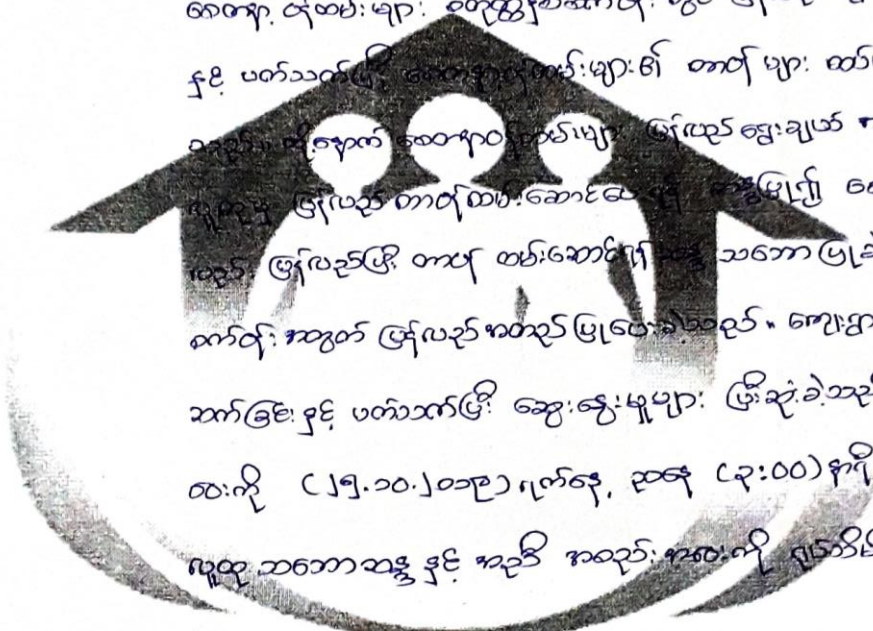 စေတနာ့ ဝန်ထမ်းများ
နှင့် ပတ်သက်ပြီး စေတနာ့ဝန်ထမ်းများ၏ တာဝန် များ ထပ်
သည်။ ထို့နောက် စေတနာ့ဝန်ထမ်းများ ပြန်လည် ရွေးချယ်
လူထုမှ ပြန်လည် တာဝန်ထမ်းဆောင်ပေးရန် ဆန္ဒပြု၍
လည်း ပြန်လည်ပြီး တာဝန် ထမ်းဆောင်ရန် ဆန္ဒ သဘော ပြုခဲ့
စက်ဝန်း အတွက် ပြန်လည် အတည် ပြုပေးခဲ့သည်။ ကျေးရွာ
ဆက်ခြင်း နှင့် ပတ်သက်ပြီး ဆွေးနွေးမှုများ ပြီးဆုံးခဲ့သည်
ဝေးကို (၂၅.၁၀.၂၀၁၉) ရက်နေ့, ညနေ (၃:၀၀) နာရီ
လူထု သဘောဆန္ဒ နှင့် အညီ အစည်းအဝေးကို ရုပ်သိမ်း